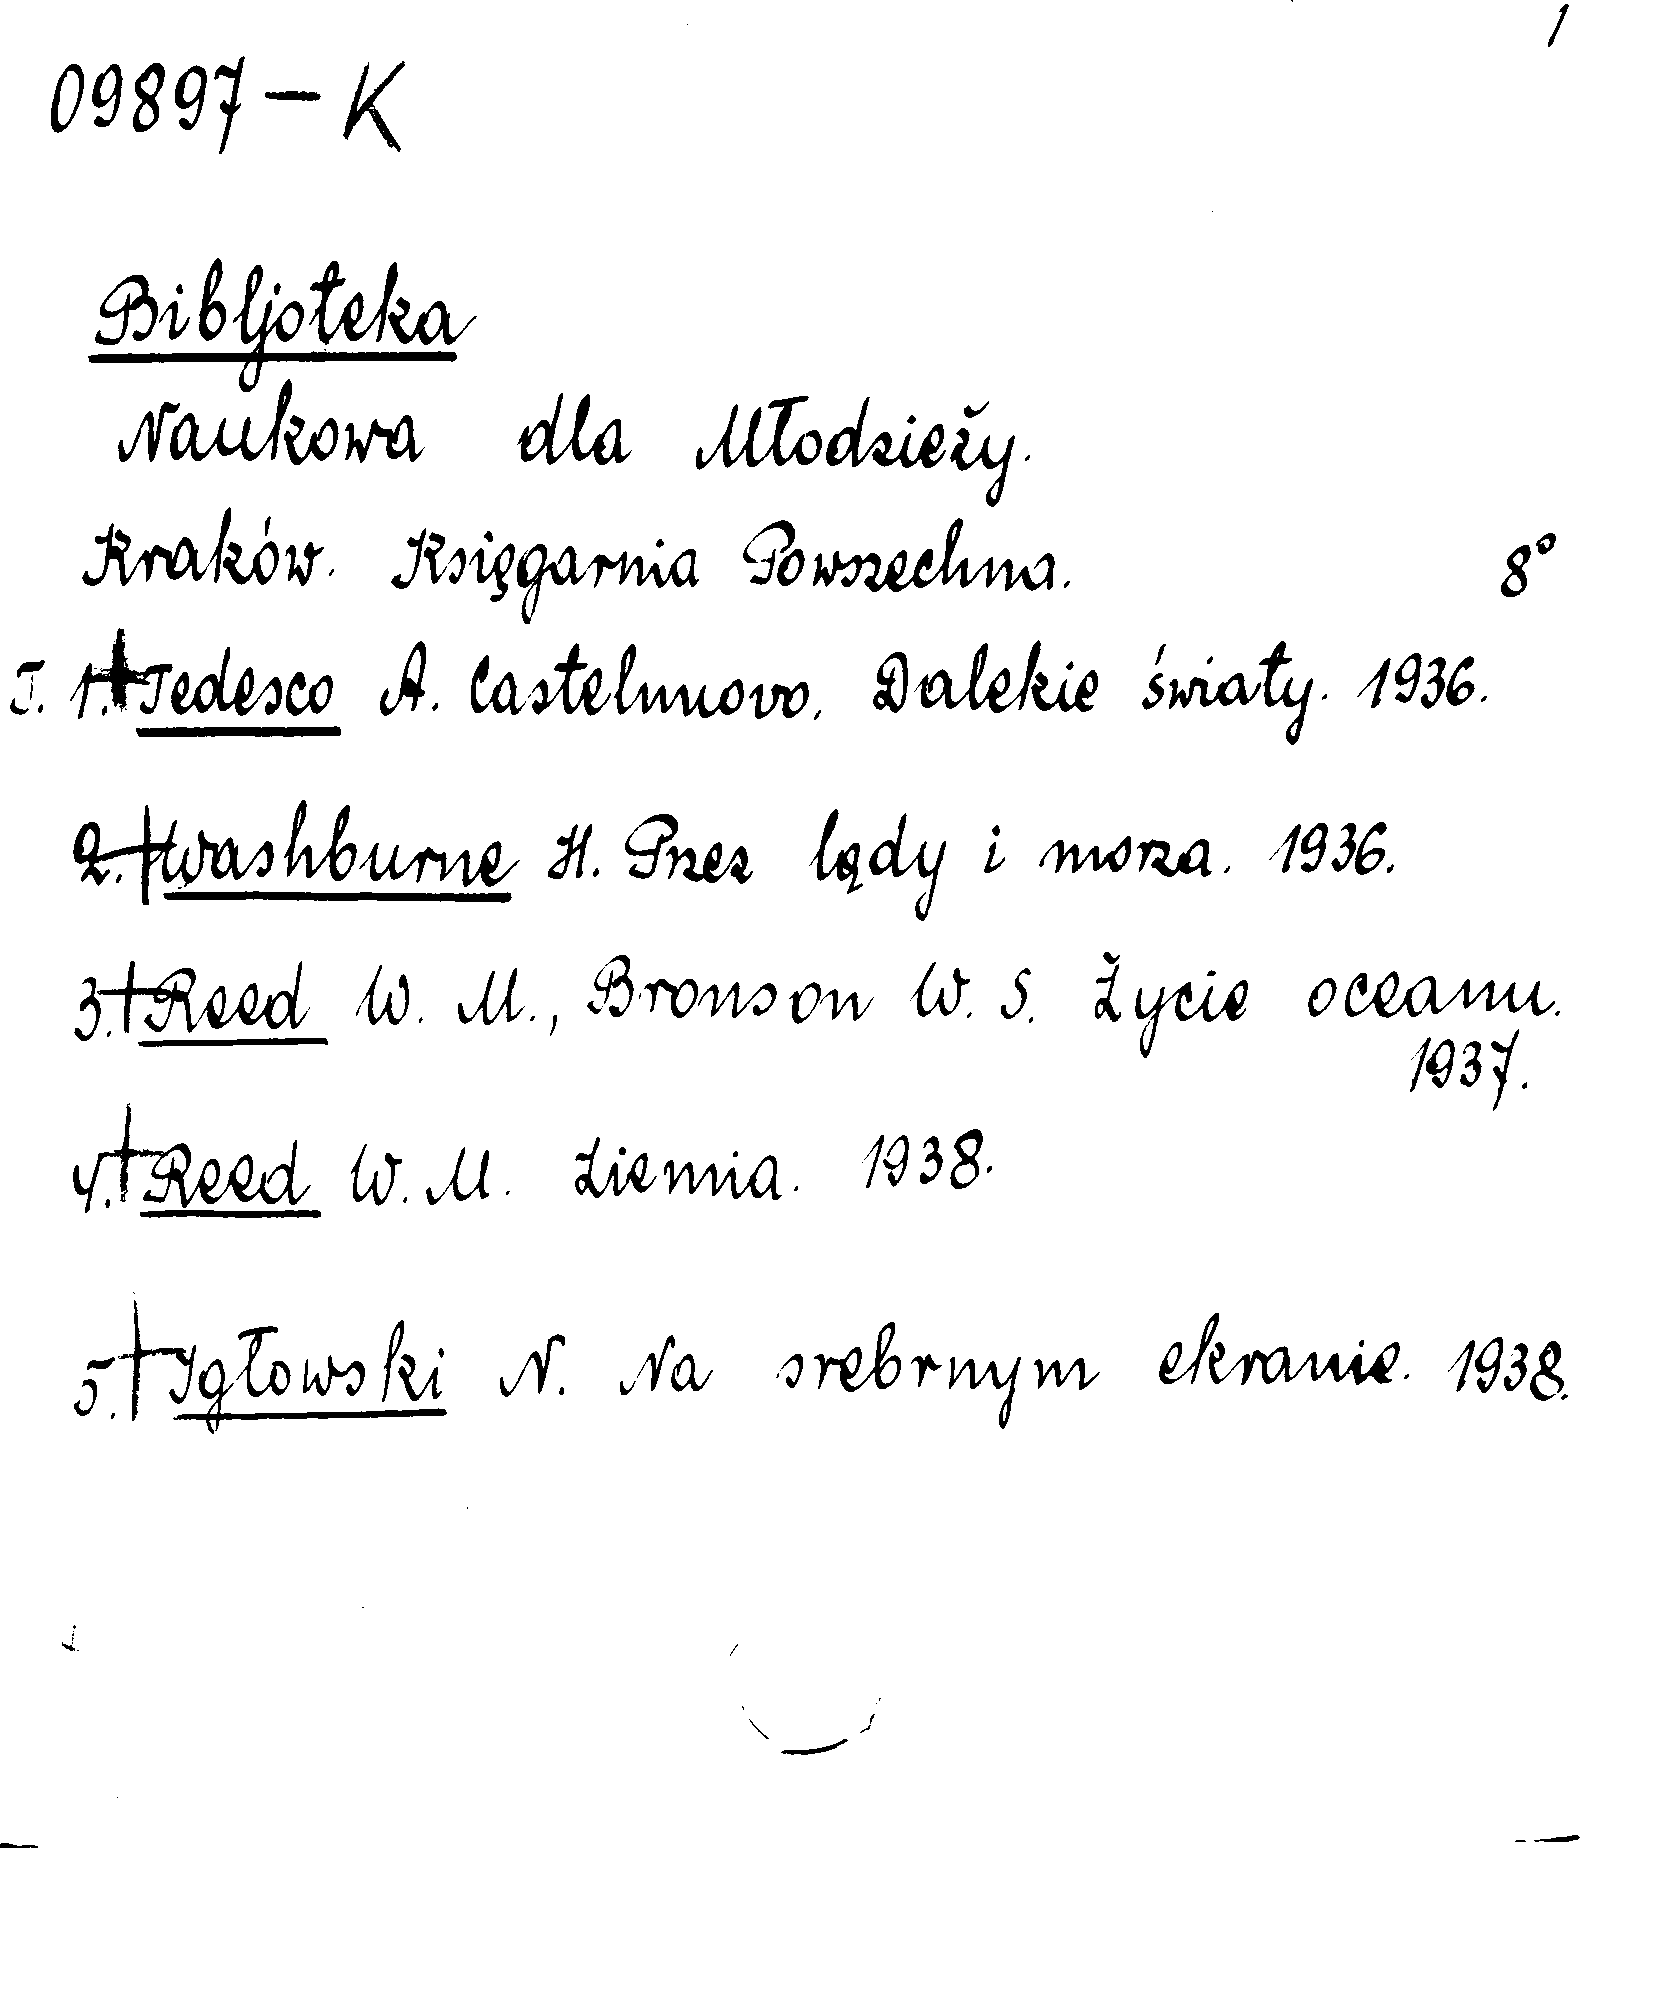 1
09897 – K
Bibljoteka
Naukowa dla Młodzieży.
Kraków. Księgarnia Powszechna. 8°
T. 1. + Tedesco A. Castelnuovo. Dalekie światy. 1936.
2. + Washburne H. Przez lądy i morza. 1936.
3. + Reed W. M., Bronson W. S. Życie oceanu.
1937.
4. + Reed W. M. Ziemia. 1938.
5. + Igłowski N. Na srebrnym ekranie. 1938.